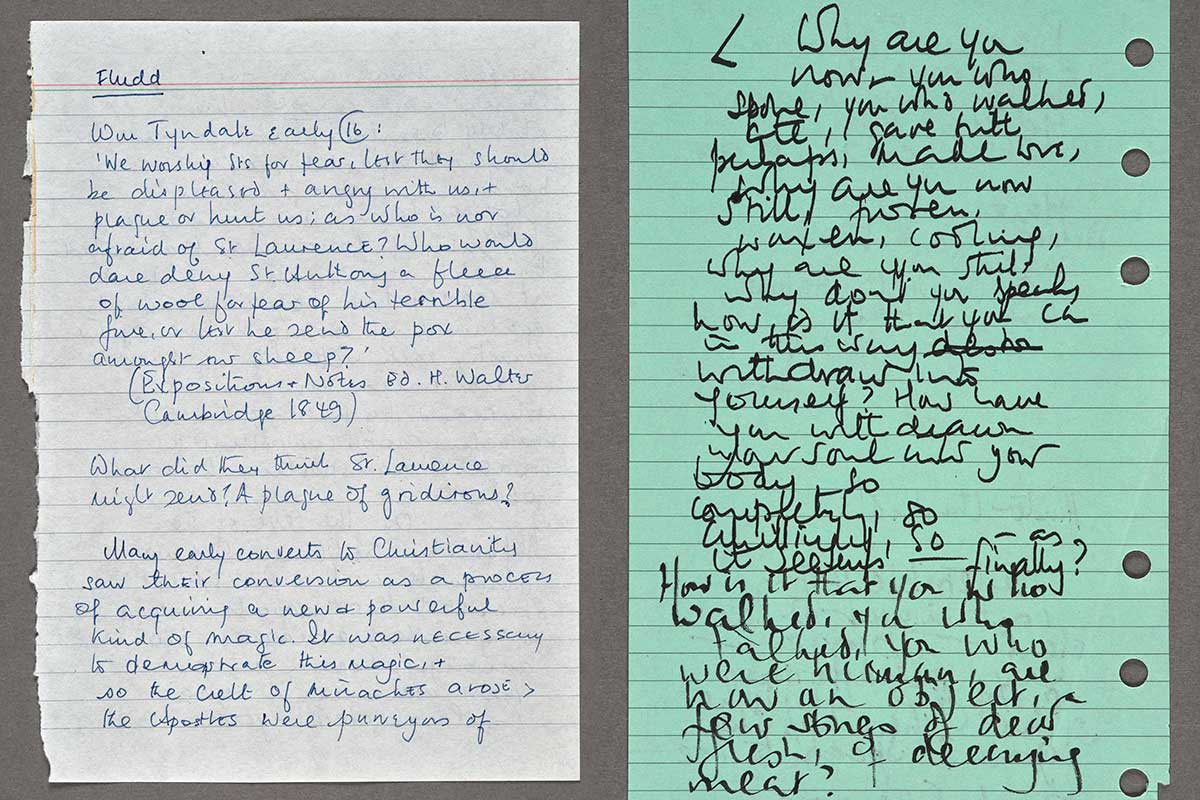 Fludd
Wm Tyndale early 16:
'We worship Sts for fear, lest they should
be displeased + angry with us, +
plague or hurt us; as who is not
afraid of St Laurence? Who would
dare deny St. Anthony a fleece
of wool for fear of his terrible
fire, or lest he send the pox
amongst our sheep?'
(Expositions + Notes Ed. H. Walter
Cambridge 1849)
What did they think St. Laurence
might send? A plague of gridirons?
Many early converts to Christianity
saw their conversion as a process
of acquiring a new & powerful
kind of magic. It was necessary
to demonstrate this magic, +
so the cult of miracles arose >
the Apostles were purveyors of
Why are you
now you who
spoke, you who walked,
ate, gave birth
perhaps, made love,
why are you now
still, frozen,
waxen, cooling,
why are you still,
why don't you speak,
how is it that you can
in this way
withdraw into
yourself? How have
you withdrawn
your soul into your
body so
completely, so
so – as
it seems – finally?
How is it that you who
walked, you who
talked, you who
were human, are
now an object, a
few stones of dead
flesh, of decaying
meat?